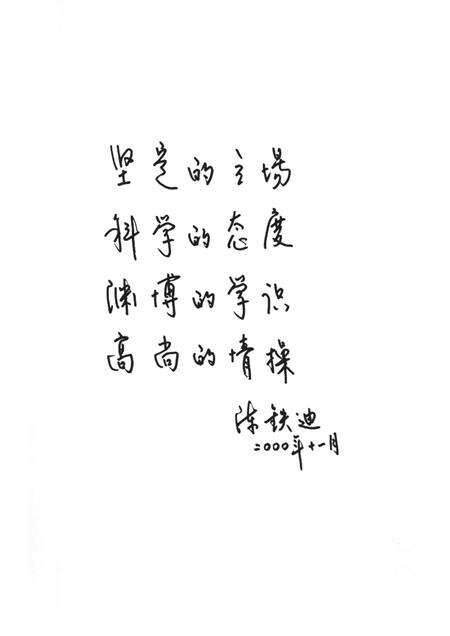 坚定的立场
科学的态度
渊博的学识
高尚的情操
陈铁迪
二000年十一月